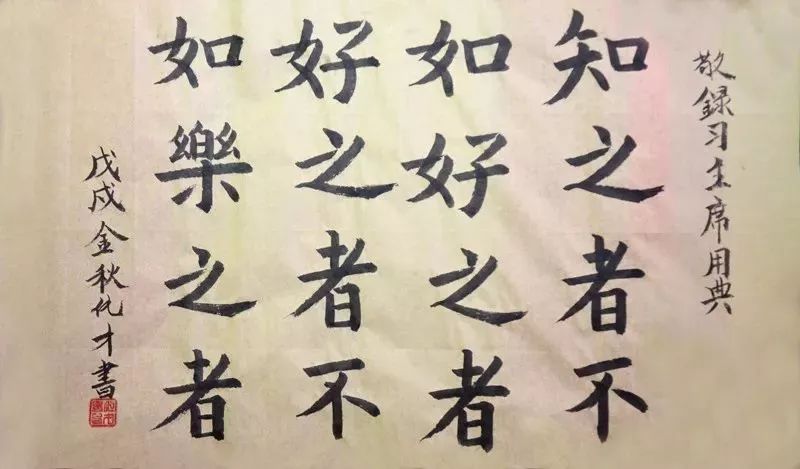 敬録习主席用典
知之者不
如好之者
好之者不
如樂之者
戊戌金秋仇才書